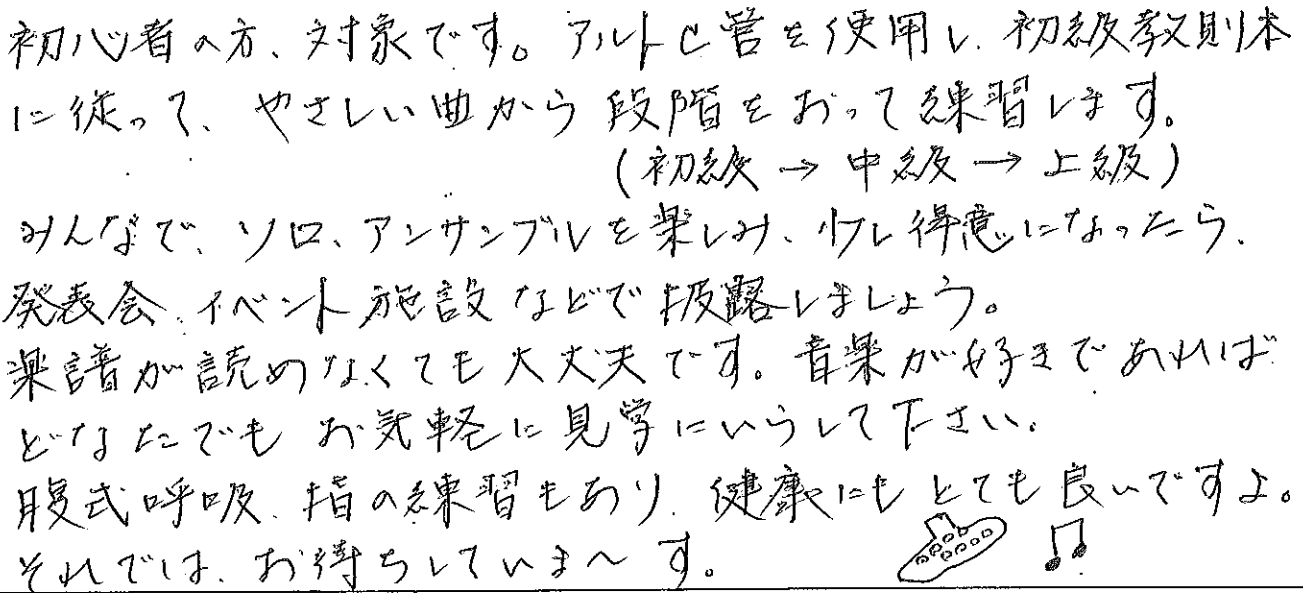 初心者の方、対象です。アルトC管を使用し、初級教則本
に従って、やさしい曲から段階をおって練習します。
(初級→中級→上級)
みんなで、ソロ、アンサンブルを楽しみ、少し得意になったら、
発表会、イベント施設などで披露しましょう。
楽譜が読めなくても大丈夫です。音楽が好きであれば
どなたでもお気軽に見学にいらして下さい。
腹式呼吸、指の練習もあり、健康にもとても良いですよ。
それでは、お待ちしていま〜す。